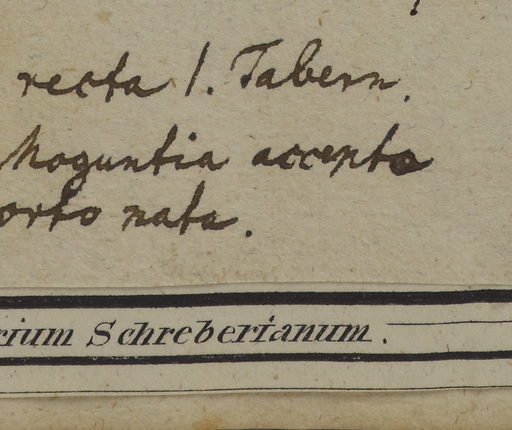 recta 1. Tabern.
Moguntia accepta
orto nata.
rium Schreberianum.